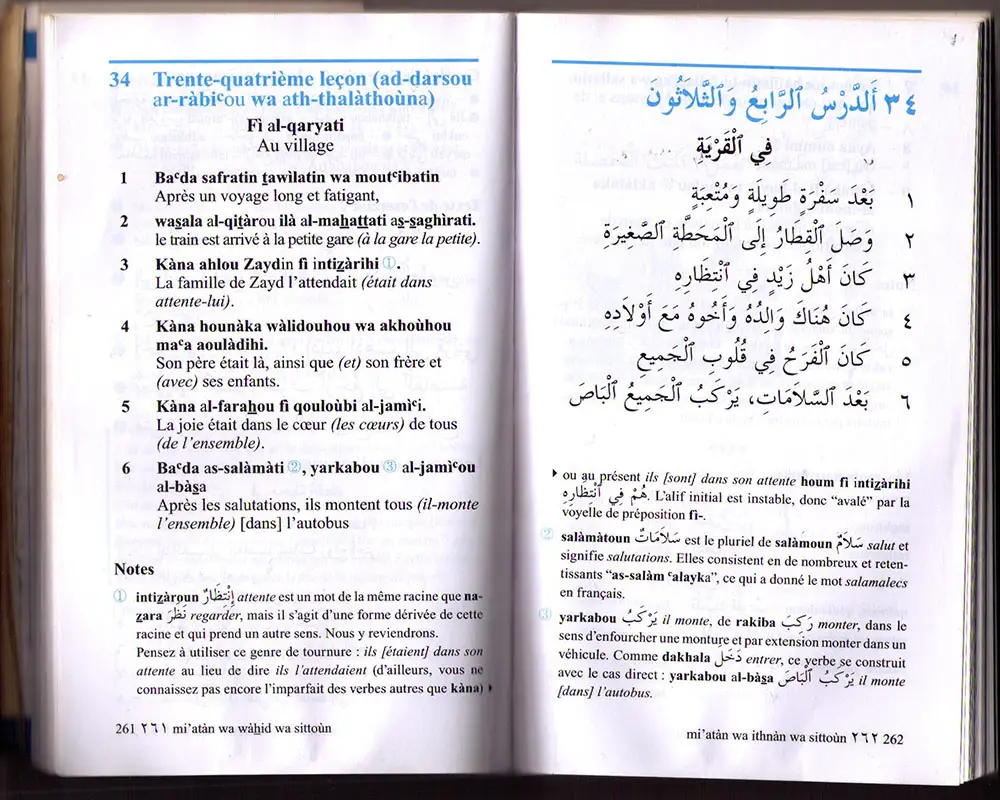 34 Trente-quatrième leçon (ad-darsou
ar-ràbiᶜou wa ath-thalàthoùna)
Fì al-qaryati
Au village
1 Baᶜda safratin ṯawìlatin wa moutᶜibatin
Après un voyage long et fatigant,
2 waṣala al-qiṯàrou ilà al-maẖaṯṯati aṣ-ṣaghìrati.
le train est arrivé à la petite gare (à la gare la petite).
3 Kàna ahlou Zaydin fì intiẕàrihi ①.
La famille de Zayd l'attendait (était dans
attente-lui).
4 Kàna hounàka wàlidouhou wa akhoùhou
maᶜa aoulàdihi.
Son père était là, ainsi que (et) son frère et
(avec) ses enfants.
5 Kàna al-faraẖou fì qouloùbi al-jamìᶜi.
La joie était dans le cœur (les cœurs) de tous
(de l'ensemble).
6 Baᶜda as-salàmàti ②, yarkabou ③ al-jamìᶜou
al-bàṣa
Après les salutations, ils montent tous (il-monte
l'ensemble) [dans] l'autobus
Notes
① intiẕàroun إِنْتِظَارٌ attente est un mot de la même racine que na-
ẕara نَظَرَ regarder, mais il s'agit d'une forme dérivée de cette
racine et qui prend un autre sens. Nous y reviendrons.
Pensez à utiliser ce genre de tournure : ils [étaient] dans son
attente au lieu de dire ils l'attendaient (d'ailleurs, vous ne
connaissez pas encore l'imparfait des verbes autres que kàna) ▸
261 ٢٦١ mi'atàn wa wàẖid wa sittoùn
٣٤ أَلدَّرْسُ ٱلرَّابِعُ وَٱلثَّلَاثُونَ
فِي ٱلْقَرْيَةِ
١ بَعْدَ سَفْرَةٍ طَوِيلَةٍ وَمُتْعِبَةٍ
٢ وَصَلَ ٱلْقِطَارُ إِلَى ٱلْمَحَطَّةِ ٱلصَّغِيرَةِ
٣ كَانَ أَهْلُ زَيْدٍ فِي ٱنْتِظَارِهِ
٤ كَانَ هُنَاكَ وَالِدُهُ وَأَخُوهُ مَعَ أَوْلَادِهِ
٥ كَانَ ٱلْفَرَحُ فِي قُلُوبِ ٱلْجَمِيعِ
٦ بَعْدَ ٱلسَّلَامَاتِ، يَرْكَبُ ٱلْجَمِيعُ ٱلْبَاصَ
▸ ou au présent ils [sont] dans son attente houm fì intiẕàrihi
هُمْ فِي ٱنْتِظَارِهِ. L'alif initial est instable, donc “avalé” par la
voyelle de préposition fì-.
② salàmàtoun سَلَامَاتٌ est le pluriel de salàmoun سَلَامٌ salut et
signifie salutations. Elles consistent en de nombreux et reten-
tissants “as-salàm ᶜalayka”, ce qui a donné le mot salamalecs
en français.
③ yarkabou يَرْكَبُ il monte, de rakiba رَكِبَ monter, dans le
sens d'enfourcher une monture et par extension monter dans un
véhicule. Comme dakhala دَخَلَ entrer, ce verbe se construit
avec le cas direct : yarkabou al-bàṣa يَرْكَبُ ٱلْبَاصَ il monte
[dans] l'autobus.
mi'atàn wa ithnàn wa sittoùn ٢٦٢ 262